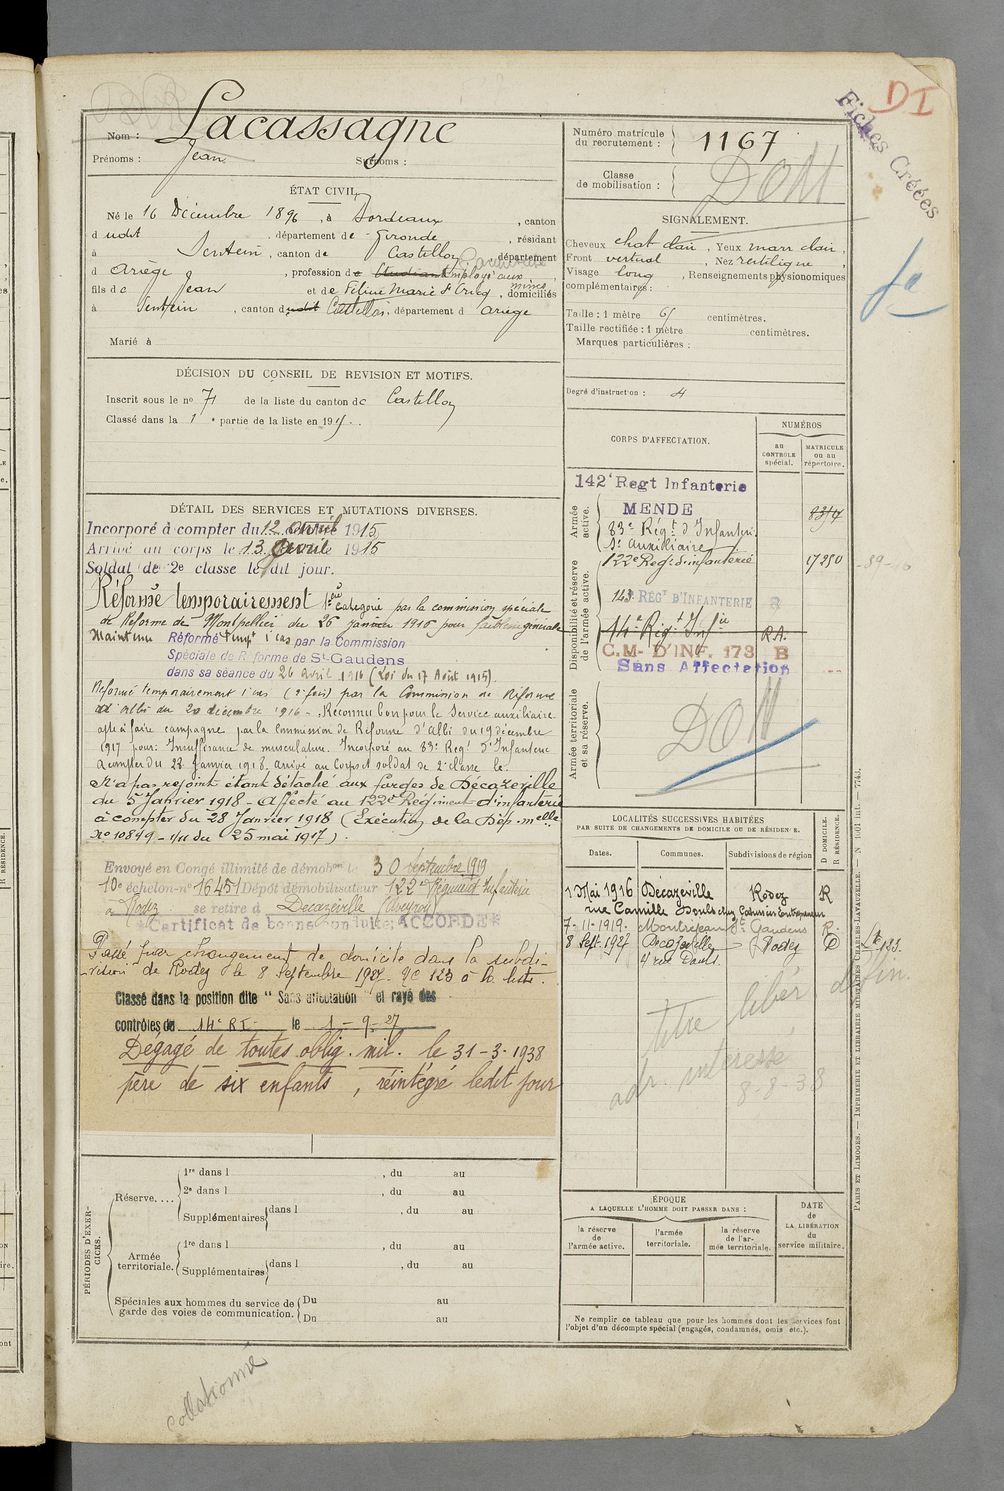 DI
Fiches Créées
Nom : Lacassagne
Prénoms : Jean
Surnoms :
Numéro matricule du recrutement : 1167
Classe de mobilisation :
DOM
ÉTAT CIVIL
Né le 16 Décembre 1896, à Bordeaux, canton
dudit, département de Gironde, résidant
à Sentein, canton de Castillon, département
d Ariège, profession de étudiant Employé aux mines
fils de Jean et de Féline Marie St Cricq, domiciliés
à Sentein, canton dudit Castillon, département d Ariège
Marié à
SIGNALEMENT.
Cheveux chat clair, Yeux marr clair,
Front vertical, Nez rectiligne,
Visage long, Renseignements physionomiques
complémentaires :
Taille : 1 mètre 65 centimètres.
Taille rectifiée : 1 mètre centimètres.
Marques particulières :
Degré d'instruction : 4
DÉCISION DU CONSEIL DE REVISION ET MOTIFS.
Inscrit sous le no 71 de la liste du canton de Castillon
Classé dans la 1e partie de la liste en 1915.
DÉTAIL DES SERVICES ET MUTATIONS DIVERSES.
Incorporé à compter du 12 avril 1915
Arrivé au corps le 13 avril 1915
Soldat de 2e classe le dit jour.
Réformé temporairement 1ère catégorie par la commission spéciale
de Réforme de Montpellier du 26 janvier 1916 pour faiblesse générale
Maintenu Réformé tempt 1 cas par la Commission
Spéciale de Réforme de St-Gaudens
dans sa séance du 26 avril 1916 (Loi du 17 Août 1915).
Réformé temporairement 1 cas (2e fois) par la Commission de Réforme
d'Albi du 20 décembre 1916 - Reconnu bon pour le Service auxiliaire
apte à faire campagne par la Commission de Réforme d'Albi du 19 décembre
1917 pour : Insuffisance de musculature. Incorporé au 83e Regt d'Infanterie
à compter du 23 Janvier 1918, arrivé au Corps et soldat de 2e classe le
N'a pas rejoint étant détaché aux forges de Décazeville
du 5 Janvier 1918 - Affecté au 122e Régiment d'infanterie
à compter du 28 Janvier 1918 (Exécution de la Dép. melle
No 10849 - 1/11 du 25 mai 1917).
Envoyé en Congé illimité de démobon le 30 septembre 1919
10e échelon no 16451 Dépôt démobilisateur 122e Régiment d'Infanterie
à Rodez se retire à Decazeville (Aveyron)
"Certificat de bonne conduite ACCORDÉ"
Passé par changement de domicile dans la subdi-
-vision de Rodez le 8 Septembre 1927. No 123 à la liste.
Classé dans la position dite "Sans affectation" et rayé des
contrôles du 14e R.I. le 1-9-27
Dégagé de toutes oblig. mil. le 31-3-1938
père de six enfants, réintégré ledit jour
CORPS D'AFFECTATION.
NUMÉROS
au CONTRÔLE spécial.
MATRICULE ou au répertoire.
Armée active.
142e Regt Infanterie
MENDE
83e Régt d'Infanterie
St Auxiliaire
Disponibilité et réserve de l'armée active.
122e Regt d'infanterie 17250
143 RÉGT D'INFANTERIE R
14e Régt Infie R.A.
C.M- D'INF. 173 B
Sans Affectation
Armée territoriale et sa réserve.
DOM
LOCALITÉS SUCCESSIVES HABITÉES
PAR SUITE DE CHANGEMENTS DE DOMICILE OU DE RÉSIDENCE.
Dates. Communes. Subdivisions de région D DOMICILE. R RÉSIDENCE.
1 Mai 1916 Décazeville Rodez R
rue Camille Douls chez Entrepreneur
7-11-1919. Montrejeau St Gaudens R.
8 Sept. 1927 Decazeville Rodez D
4 rue Douls. 123.
Titre libér. défin.
adr. intéressé
8-8-38
PÉRIODES D'EXERCICES.
Réserve....
1re dans l , du au
2e dans l , du au
Supplémentaires dans l , du au
Armée territoriale.
1re dans l , du au
Supplémentaires dans l , du au
Spéciales aux hommes du service de garde des voies de communication.
Du au
Du au
ÉPOQUE
A LAQUELLE L'HOMME DOIT PASSER DANS :
la réserve de l'armée active.
l'armée territoriale.
la réserve de l'armée territoriale.
DATE de LA LIBÉRATION du service militaire.
Ne remplir ce tableau que pour les hommes dont les services font
l'objet d'un décompte spécial (engagés, condamnés, omis etc.).
PARIS ET LIMOGES. — IMPRIMERIE ET LIBRAIRIE MILITAIRES CHARLES-LAVAUZELLE. — N 1001 int. — 7743.
collationné